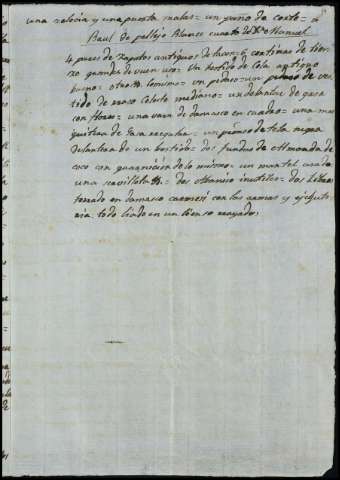 una zelocia y una puerta malas = un paño de corte = a
Baul de pellejo Blanco cuarto de Dn Manuel
4 pares de zapatos antiguos de = 6 cortinas de lien-
zo grandes de buen uso = Un bestido de Cola antiguo
bueno = otro = un = un pedazo de ves-
tido de raso Celeste mediano = un delantal de gasa
con flores = una vara de damasco en cuadro = una man-
de = un pedazo de tela rosa
delantera de un bestido = dos fundas de Almoada de
coco con guarnicion de lo mismo = un mantel usado
una servilleta = dos Abanico inutiles = dos Libros
forrado en damasco carmesi con las armas y ejecuto-
ria todo liado en un lienso rayado,